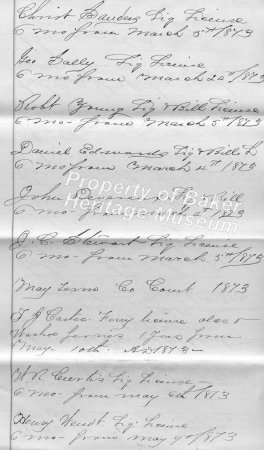 Christ Landaz Liq License
6 mo from March 5th 1873
Geo Sally Liq License
6 mo from March 20th 1873
Robt Young Liq & Bill License
6 mo from March 5th 1873
Daniel Edmonds Liq & Bill L
6 mo from March 4th 1873
John Bill
6 mo from 1873
J. C. Stewart Liq License
6 mo from March 5th 1873
May Term Co Court 1873
Ferry license also
from
May 10th AD 1873
W R Curtis Liq License
6 mo from may 6th 1873
Henry Wendt Liq License
6 mo from may 9th 1873
Property of Baker
Heritage Museum